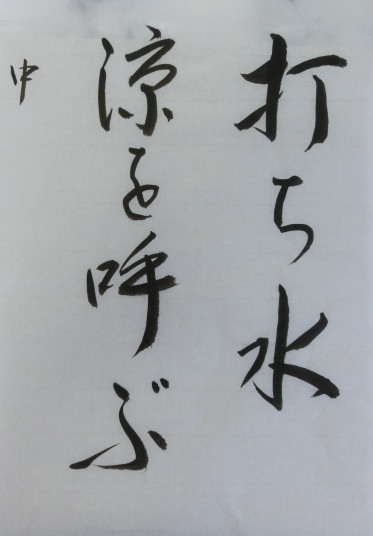 打ち水
涼を呼ぶ
中